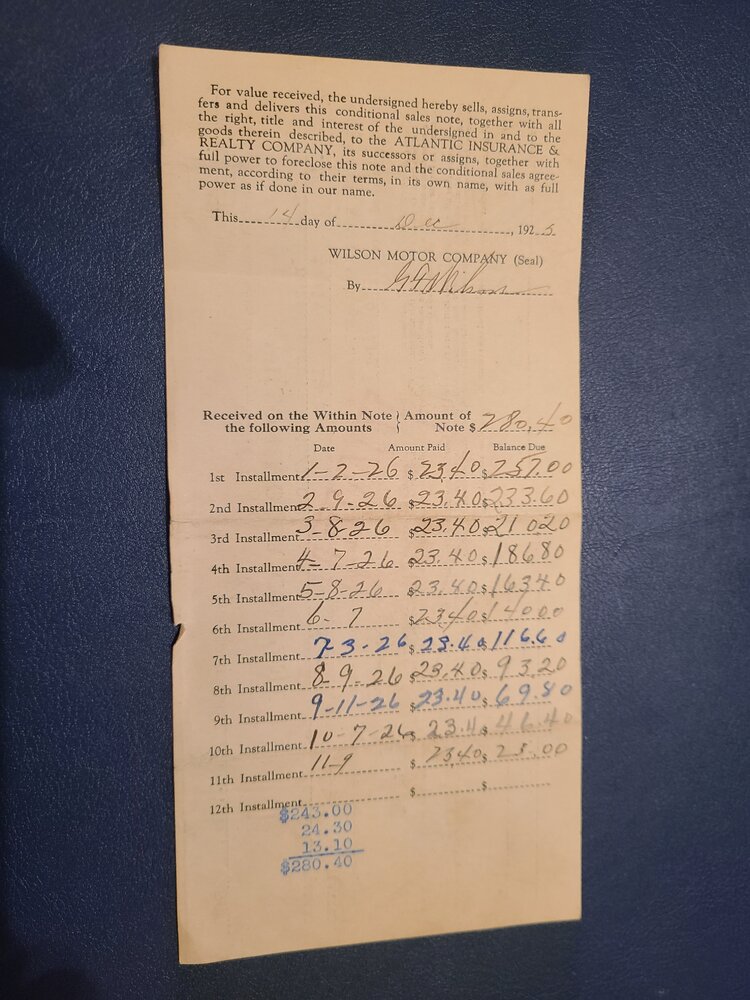 For value received, the undersigned hereby sells, assigns, trans-
fers and delivers this conditional sales note, together with all
the right, title and interest of the undersigned in and to the
goods therein described, to the ATLANTIC INSURANCE &
REALTY COMPANY, its successors or assigns, together with
full power to foreclose this note and the conditional sales agree-
ment, according to their terms, in its own name, with as full
power as if done in our name.
This 14 day of Dec, 1925
WILSON MOTOR COMPANY (Seal)
By Wilson
Received on the Within Note { Amount of
the following Amounts { Note $ 280.40
Date Amount Paid Balance Due
1st Installment 1-2-26 $ 23.40 $ 257.00
2nd Installment 2-9-26 $ 23.40 $ 233.60
3rd Installment 3-8-26 $ 23.40 $ 210.20
4th Installment 4-7-26 $ 23.40 $ 186.80
5th Installment 5-8-26 $ 23.40 $ 163.40
6th Installment 6-7 $ 23.40 $ 140.00
7th Installment 7-3-26 $ 23.40 $ 116.60
8th Installment 8-9-26 $ 23.40 $ 93.20
9th Installment 9-11-26 $ 23.40 $ 69.80
10th Installment 10-7-26 $ 23.4 $ 46.40
11th Installment 11-9 $ 23.40 $ 23.00
12th Installment $ $
$243.00
24.30
13.10
$280.40